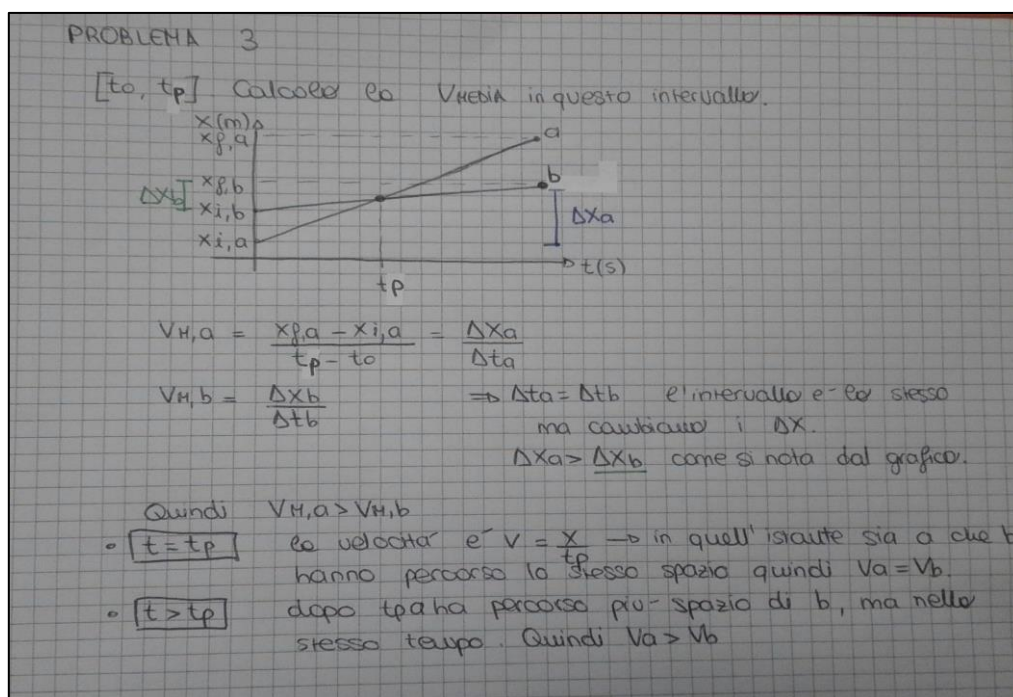 PROBLEMA 3
[to, tp] Calcolo la VMEDIA in questo intervallo.
x(m)
xf,a
a
xf,b
b
Δxb
xi,b
Δxa
xi,a
t(s)
tp
VM,a = xf,a - xi,a / tp - to = Δxa / Δta
VM,b = Δxb / Δtb ⇒ Δta = Δtb l'intervallo e- lo stesso
ma cambiano i Δx.
Δxa > Δxb come si nota dal grafico.
Quindi VM,a > VM,b
• t = tp la velocità e- v = x / tp → in quell'istante sia a che b
hanno percorso lo stesso spazio quindi Va = Vb.
• t > tp dopo tp a ha percorso piu- spazio di b, ma nello
stesso tempo. Quindi Va > Vb